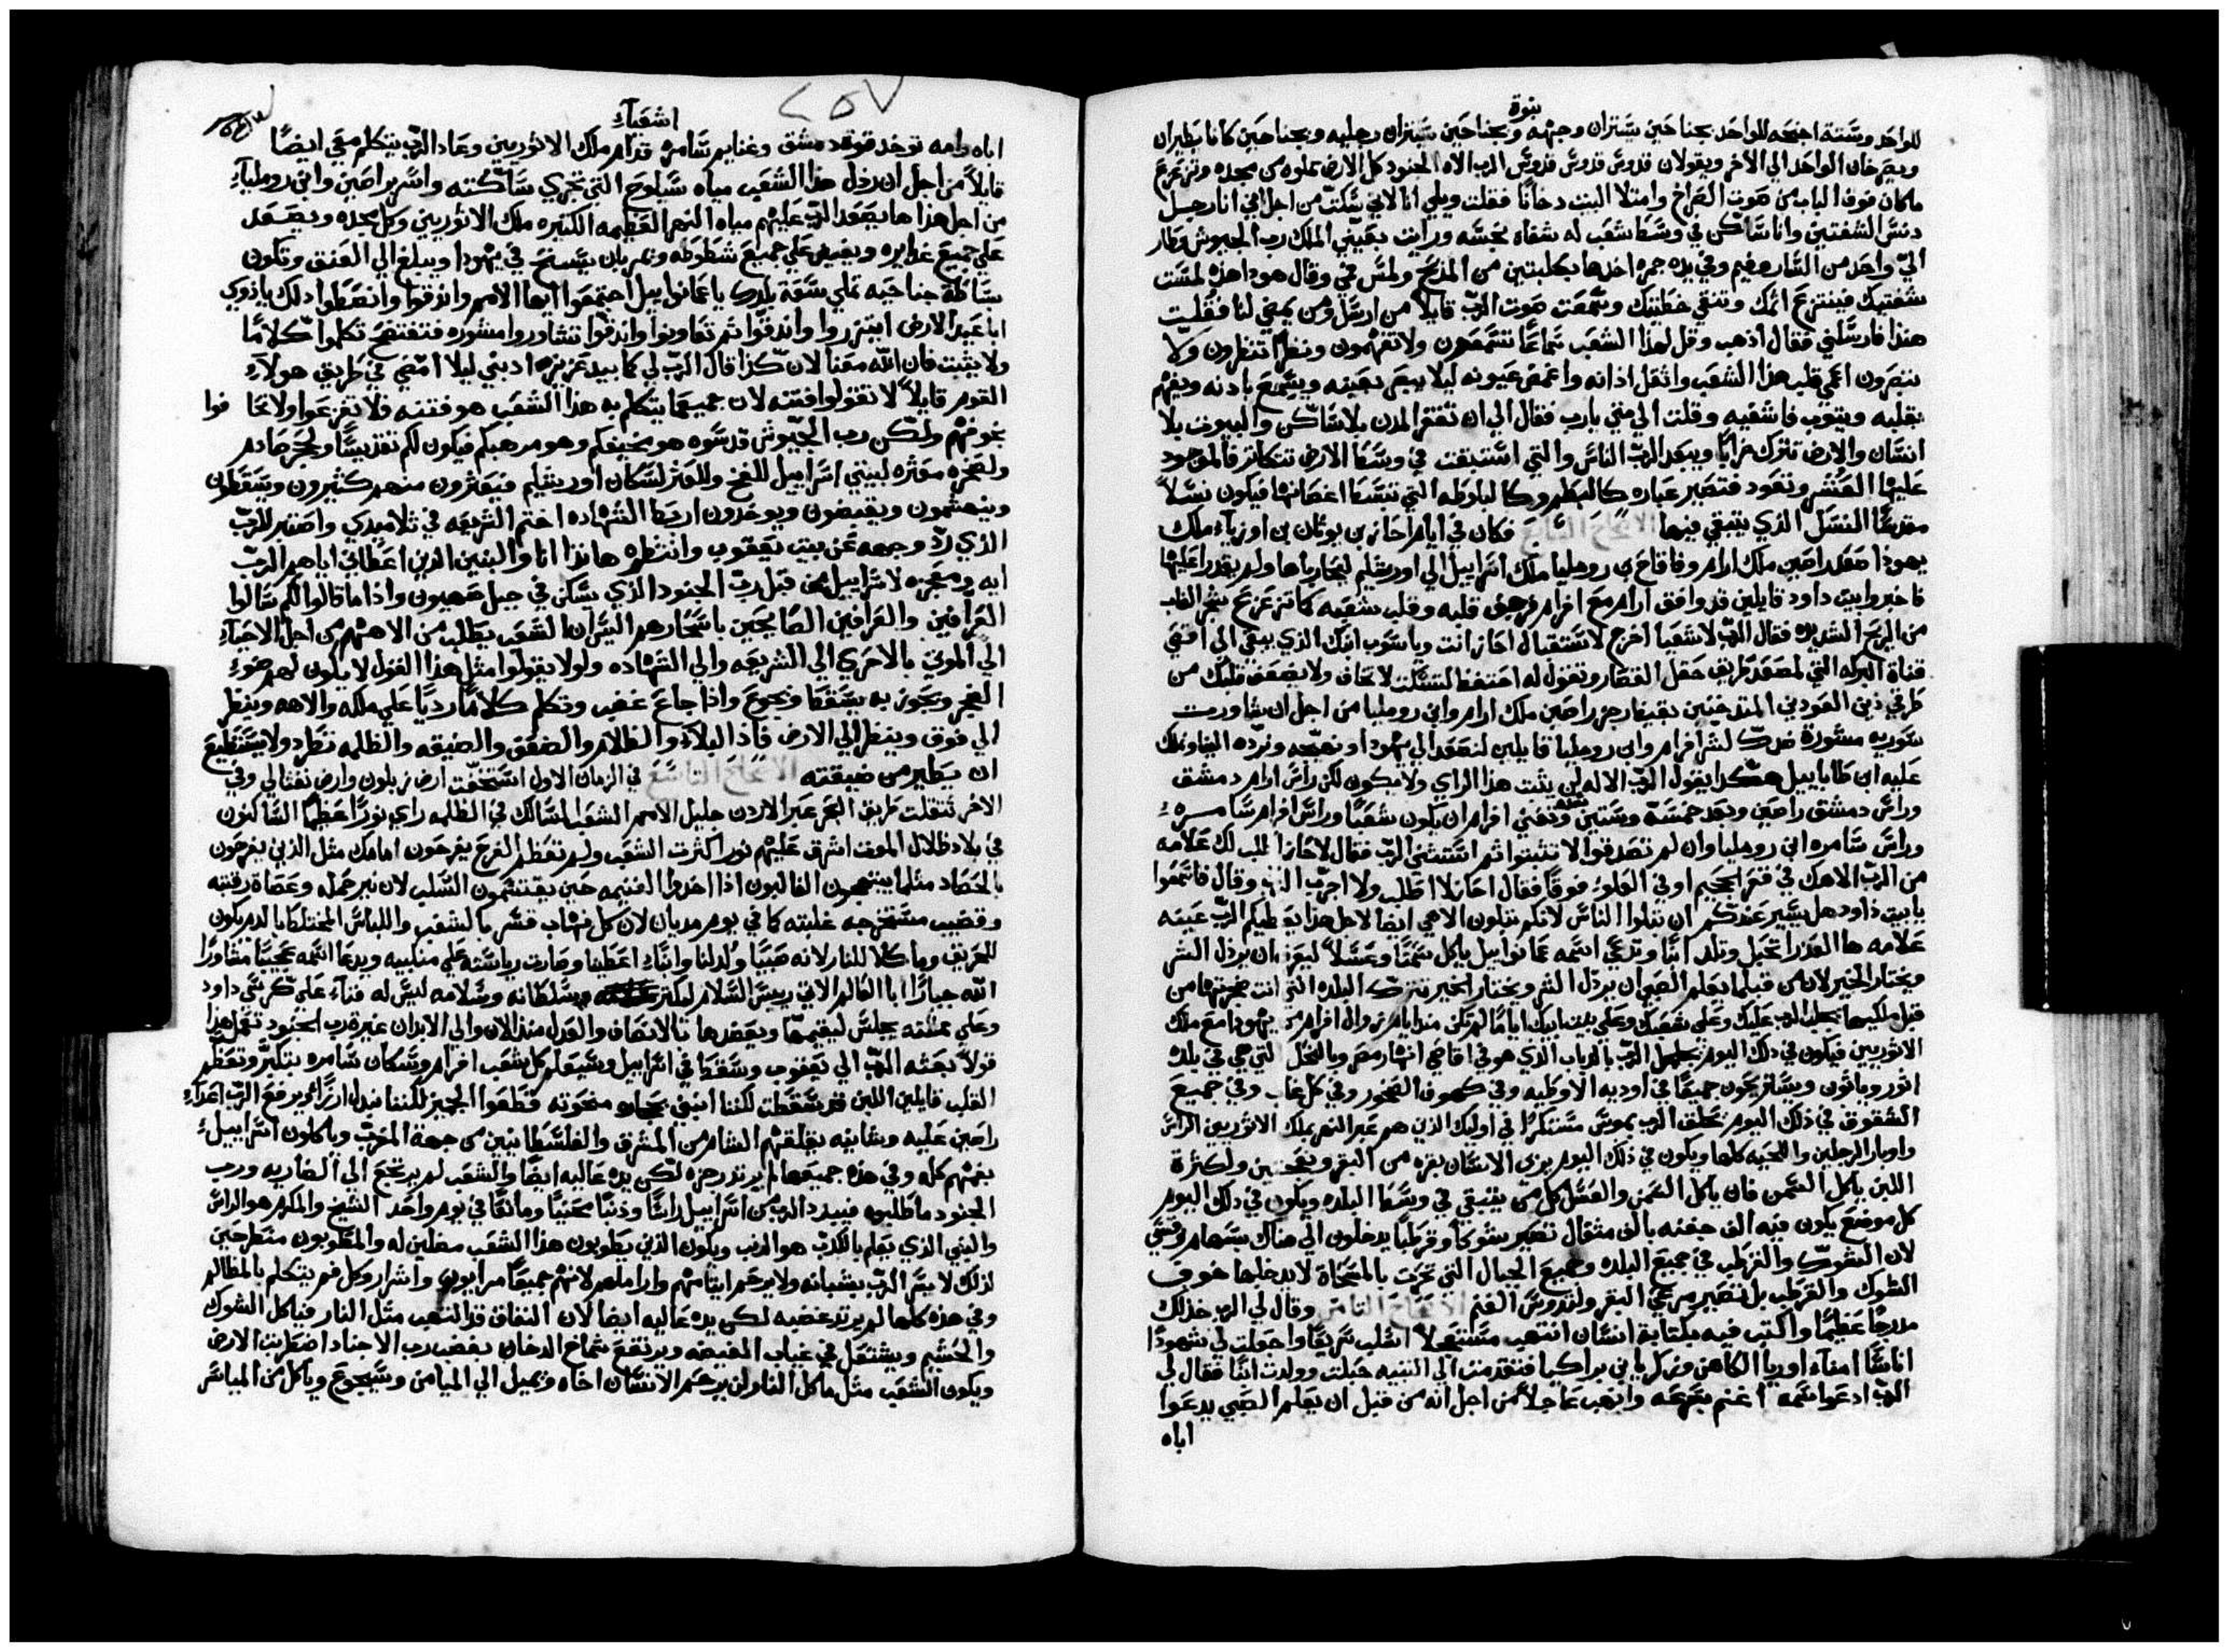 نبوة
للواحد وستة اجنحه للواحد بجناحين يستران وجهه وبجناحين يستران رجليه وبجناحين كانا يطيران
ويصرخان الواحد الي الاخر ويقولان قدوس قدوس قدوس الرب الاه الجنود كل الارض مملوه من مجده وتزعزع
ماكان فوق الباب من صوت الصراخ وامتلا البيت دخانا فقلت ويلي انا لاني سكت من اجل اني انا رجل
دنس الشفتين وانا ساكن في وسط شعب له شفاه نجسه ورايت بعيني الملك رب الجيوش وطار
الي واحد من الساروفيم وفي يده جمره اخذها بكلبتين من المذبح ولمس فمي وقال هوذا هذه لمست
شفتيك فينتزع اثمك وتنقي خطيتك وسمعت صوت الرب قايلا من ارسل ومن يمضي لنا فقلت
هنذا فارسلني فقال اذهب وقل لهذا الشعب سماعا تسمعون ولا تفهمون ونظرا تنظرون ولا
تبصرون اعمي قلب هذا الشعب واثقل اذانه واغمض عيونه ليلا يبصر بعينه ويسمع باذنه ويفهم
بقلبه ويتوب فاشفيه وقلت الي متي يارب فقال الي ان تقفر المدن بلا ساكن والبيوت بلا
انسان والارض تترك خرابا ويبعد الرب الناس والتي استبقت في وسط الارض تتكاثر فالموجود
عليها العشر وتعود فتصير عباره كالبطم وكالبلوطه التي تبسط اغصانها فيكون نسلا
مقدسا النسل الذي يتبقي فيها الاصحاح السابع فكان في ايام احاز بن يوثان بن اوزياء ملك
يهوذا صعد راصين ملك ارام وفاقاح بن روماليا ملك اسراييل الي اورشليم ليحارباها ولم يقدرا عليها
فاخبروا بيت داود قايلين قد وافق ارام مع افرام فرجف قلبه وقلب شعبه كما تتزعزع شجر الغاب
من الريح الشديده فقال الرب لاشعيا اخرج لاستقبال احاز انت وياشوب ابنك الذي يبقي الي اقصي
قناة البركه التي لمصعد طريق حقل القصار وتقول له احتفظ لتسكت لا تخاف ولا يضعف قلبك من
طرفي ذنبي العودين المتدخنين بغيظ رجز راصين ملك ارام وابن روماليا من اجل ان تشاورت
سوريه مشورة ضدك لشر افرام وابن روماليا قايلين لنصعد الي يهوذا ونهيجه ونرده الينا ونملك
عليه ابن طاباييل هكذا يقول الرب الاله لن يثبت هذا الراي ولا يكون لكن راس ارام دمشق
وراس دمشق راصين وبعد خمسة وستين سنه وتفني افرام ان يكون شعبا وراس افرام سامره
وراس سامره ابن روماليا وان لم تصدقوا لا تثبتوا ثم استثني الرب فقال لاحاز اطلب لك علامه
من الرب الاهك في قعر الجحيم او في العلو فوقا فقال احاز لا اطلب ولا اجرب الرب وقال فاسمعوا
يابيت داود هل يسير عندكم ان تتلوا الناس لانكم تتلون الاهي ايضا لاجل هذا يعطيكم الرب عينه
علامه ها العذرا تحبل وتلد ابنا ويدعي اسمه عمانوييل ياكل سمنا وعسلا ليعرف ان يرذل الشر
ويختار الخير لان من قبل ما يعلم الصبي ان يرذل الشر ويختار الخير تترك البلده التي انت ضجرتها من
قبل ملكيها يجلب الرب عليك وعلي شعبك وعلي بيت ابيك اياما لم تكن منذ ايام زوال افرام من يهوذا مع ملك
الاثوريين فيكون في ذلك اليوم يصفر الرب بالذباب الذي هو في اقاصي انهار مصر وبالنحل التي هي في بلده
اثور وياتون ويستريحون جميعا في اوديه الاوطيه وفي كهوف الصخور وفي كل غاب وفي جميع
الشقوق في ذلك اليوم يحلق الرب بموس مستكرا في اوليك الذين هم عبر النهر بملك الاثوريين الراس
واوبار الرجلين واللحيه كلها ويكون في ذلك اليوم يربي الانسان بقره من البقر ونعجتين ولكثرة
اللبن ياكل السمن فان ياكل السمن والعسل كل من يتبقي في وسط البلده ويكون في ذلك اليوم
كل موضع يكون فيه الف جفنه بالف مثقال تصير شوكا وقرطبا يدخلون الي هناك بسهام وقسي
لان الشوك والقرطب في جميع البلده وجميع الجبال التي تحرث بالمسحاة لا يدخلها خوف
الشوك والقرطب بل تصير مرعي البقر ولدوس الغنم الاصحاح الثامن وقال لي الرب خذ لك
مدرجا عظيما واكتب فيه بكتابة انسان انتهب مستعجلا اسلب سريعا واجعلت لي شهودا
اناسا امناء اوريا الكاهن وزكريا بن براكيا فتقدمت الي النبيه حبلت وولدت ابنا فقال لي
الرب ادعوا اسمه اغنم بسرعه وانهب عاجلا من اجل انه من قبل ان يعلم الصبي يدعوا
اباه
٢٥٧
اشعياء
اباه وامه توخذ قوة دمشق وغنايم سامره قدام ملك الاثوريين وعاد الرب يتكلم معي ايضا
قايلا من اجل ان رذل هذا الشعب مياه سيلوح التي تجري ساكته واسر براصين وابن روملياء
من اجل هذا ها يصعد الرب عليهم مياه النهر العظيمه الكثيره ملك الاثوريين وكل مجده ويصعد
علي جميع غدايره ويفيض علي جميع شطوطه ونمر بان يسيح في يهوذا ويبلغ الي العنق وتكون
ساطة جناحيه تملي سعة بلدك ياعمانوييل اجتمعوا ايها الامم واندقوا وانصطوا ذلك ياذوي
اباعيد الارض ابتزروا واندقوا ثم تعاونوا واندقوا تشاوروا مشوره فتفتضح تكلموا كلاما
ولا يثبت فان الله معنا لان كذا قال الرب لي كما بيد عزيزه ادبني ليلا امضي في طريق هولاء
القوم قايلا لا تقولوا فتنه لان جميع ما يتكلم به هذا الشعب هو فتنه فلا تفزعوا ولا تخافوا
خوفهم ولكن رب الجيوش قدسوه هو مخيفكم وهو مرهبكم فيكون لكم تقديسا ولحجر صادم
ولصخره معثره لبيتي اسراييل للفخ وللعثر لسكان اورشليم فيعثرون منهم كثيرون ويسقطون
وينهشمون ويقبضون ويوخذون اربط الشهاده اختم الشريعه في تلاميذي واصطبر للرب
الذي رد وجهه عن بيت يعقوب وانتظره هانذا انا والبنين الذين اعطاني اياهم الرب
ايه ومعجزه لاسراييل من قبل رب الجنود الذي يسكن في جبل صهيون واذا ما قالوا لكم سالوا
العرافين والعرافين الصايحين باسحارهم اليس ان الشعب يطلب من الاههم من اجل الاحياء
الي الموتي بالاحري الي الشريعه والي الشهاده ولولا يقولوا مثل هذا القول لا يكون لهم ضوء
الفجر ويجوز به يسقط ويجوع واذا جاع غضب وتكلم كلاما رديا علي ملكه والاهه وينظر
الي فوق وينظر الي الارض فاذا البلاء والظلام والضعف والضيقه والظلمه تطرد ولا يستطيع
ان يطير من ضيقته الاصحاح التاسع في الزمان الاول استخفت ارض زبلون وارض نفتالي وفي
الاخر تثقلت طريق البحر عبر الاردن جليل الامم الشعب السالك في الظلمه راي نورا عظيما الساكنون
في بلاد ظلال الموت اشرق عليهم نور اكثرت الشعب ولم تعظم الفرح يفرحون امامك مثل الذين يفرحون
بالحصاد مثلما يبتهجون الغالبون اذا اخذوا الغنيمه حين يقتسمون السلب لان نير حمله وعصاة رقبته
وقضيب مستخرجه غلبته كما في يوم مديان لان كل نهاب قسر بالشعب واللباس المختلط بالدم يكون
للحريق وماكلا للنار لانه صبيا ولد لنا وابناء اعطينا وصارت رياسته علي منكبيه ويدعا اسمه عجيبا مشاورا
الله جبارا ابا العالم الاتي رييس السلام ليكثر سلطانه وسلامه ليس له فناء علي كرسي داود
وعلي مملكته يجلس ليقيمها ويعضدها بالانصاف والعدل منذ الان والي الابدان غيرة رب الجنود تعمل هذا
قولا بعثه الرب الي يعقوب وسقط في اسراييل وسيعلم كل شعب افرام وسكان سامره بتكبر وتعظم
القلب قايلين اللبن قد سقطت لكننا نبني بحجاره منحوته قطعوا الجميز لكننا نبدل ارزا ويرفع الرب اعداء
راصين عليه وشانيه يقلقهم الشام من المشرق والفلسطانيين من جهة المغرب وياكلون اسراييل
بفمهم كله وفي هذه جميعها لم يرتد رجزه لكن يده عاليه ايضا والشعب لم يرتجع الي الضاربه ورب
الجنود ما طلبوه فيبدد الرب من اسراييل راسا وذنبا محنيا ومانعا في يوم واحد الشيخ والمكرم هو الراس
والنبي الذي يعلم بالكذب هو الذنب ويكون الذين يطوبون هذا الشعب مضلين له والمطوبون منطرحين
لذلك لا يسر الرب بشبانه ولا يرحم ايتامهم وارامِلهم لانهم جميعا مرايون واشرار وكل فم يتكلم بالمظالم
وفي هذه كلها لم يرتد غضبه لكن يده عاليه ايضا لان النفاق قد التهب مثل النار فياكل الشوك
والحشيم ويشتعل في غياب الغيضه ويرتفع شماخ الدخان بغضب رب الاجناد اضطربت الارض
ويكون الشعب مثل ماكل النار لن يرحم الانسان اخاه ويميل الي الميامن وسيجوع وياكل من المياسر